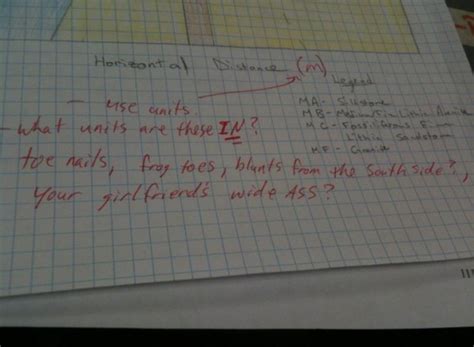 Horizontal Distance (m)
Legend
- use units.
MA - Siltstone
MB - Medium/Fine Lithic Arenite
- What units are these IN?
MC - Fossiliferous Fine
Lithic Sandstone
MF - Granite
toe nails, frog toes, blunts from the South side?,
Your girlfriend's wide ASS?